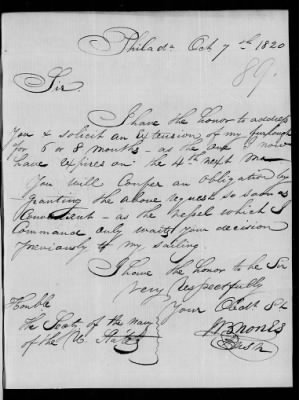 Philada Oct 7th 1820
89.
Sir
I have the honor to address
you & solicit an extension of my furlough
for 6 or 8 months - as the one I now
have expires on the 4th next
You will Confer an obligation by
granting the above request so soon as
Convenient - as the Vessel which I
command only waits your decision
previously to my sailing.
I have the honor to be Sir
very Respectfully
Your Obedt St
Honble
the Secty of the navy
of the U. States